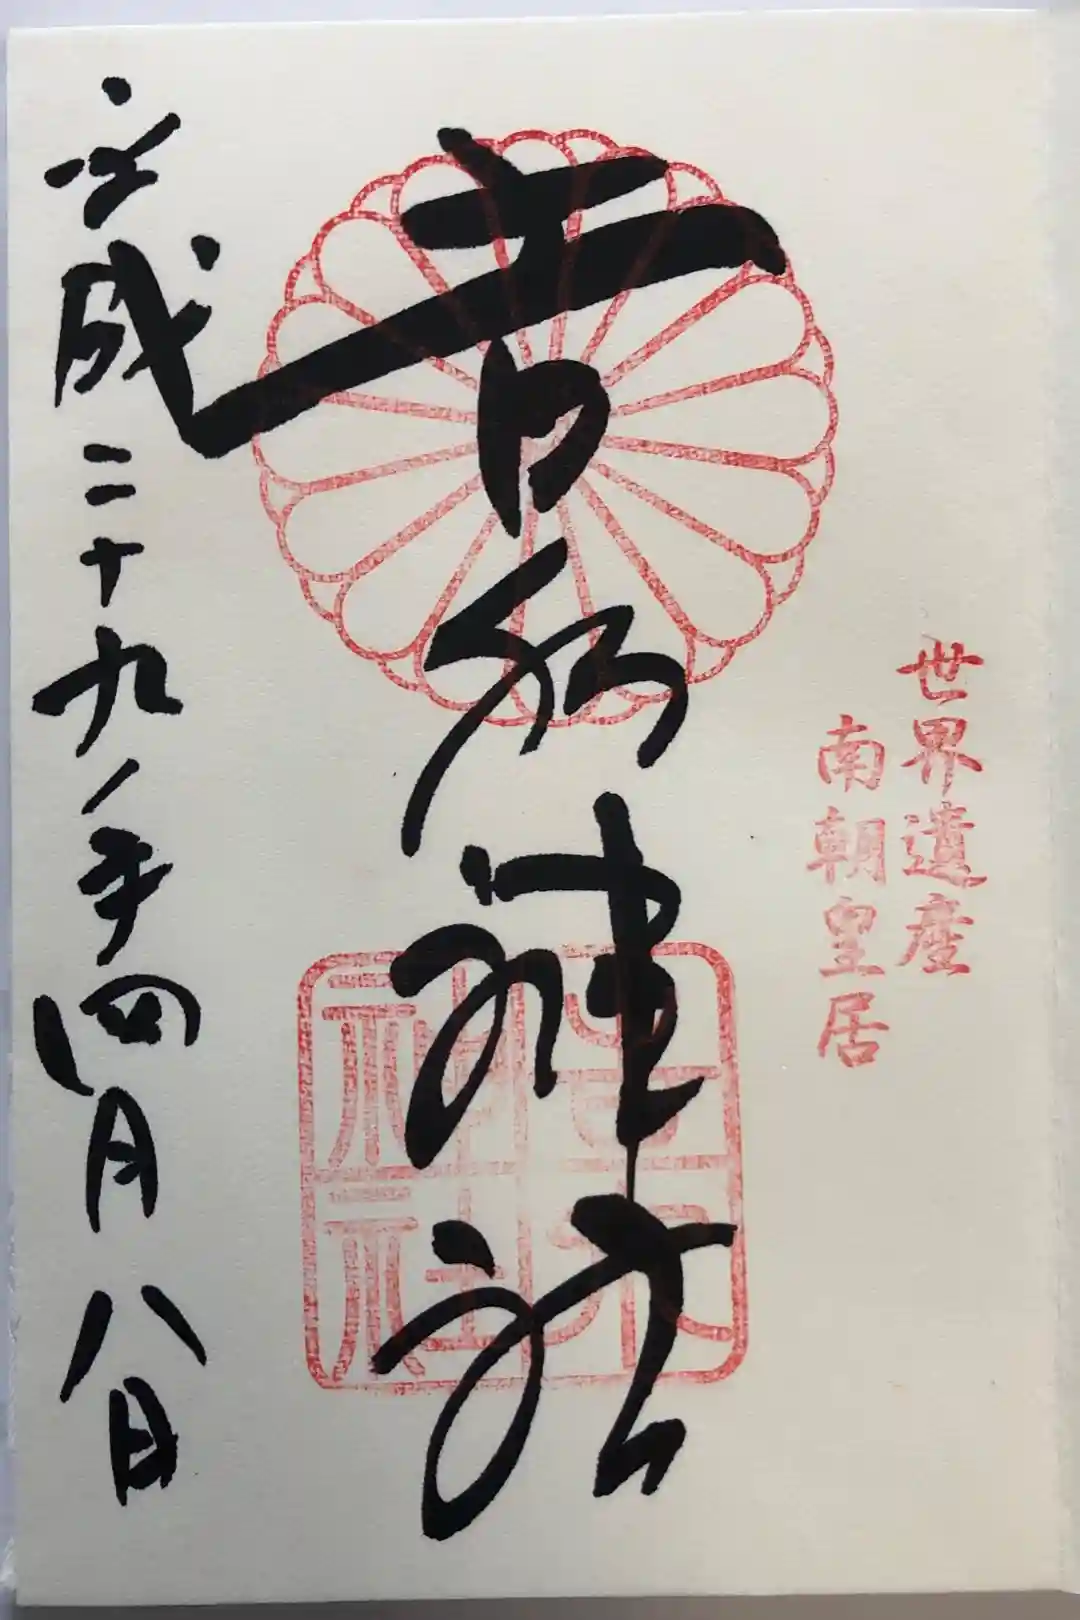 世界遺産
南朝皇居
吉水神社
吉水神社
平成二十九年四月八日